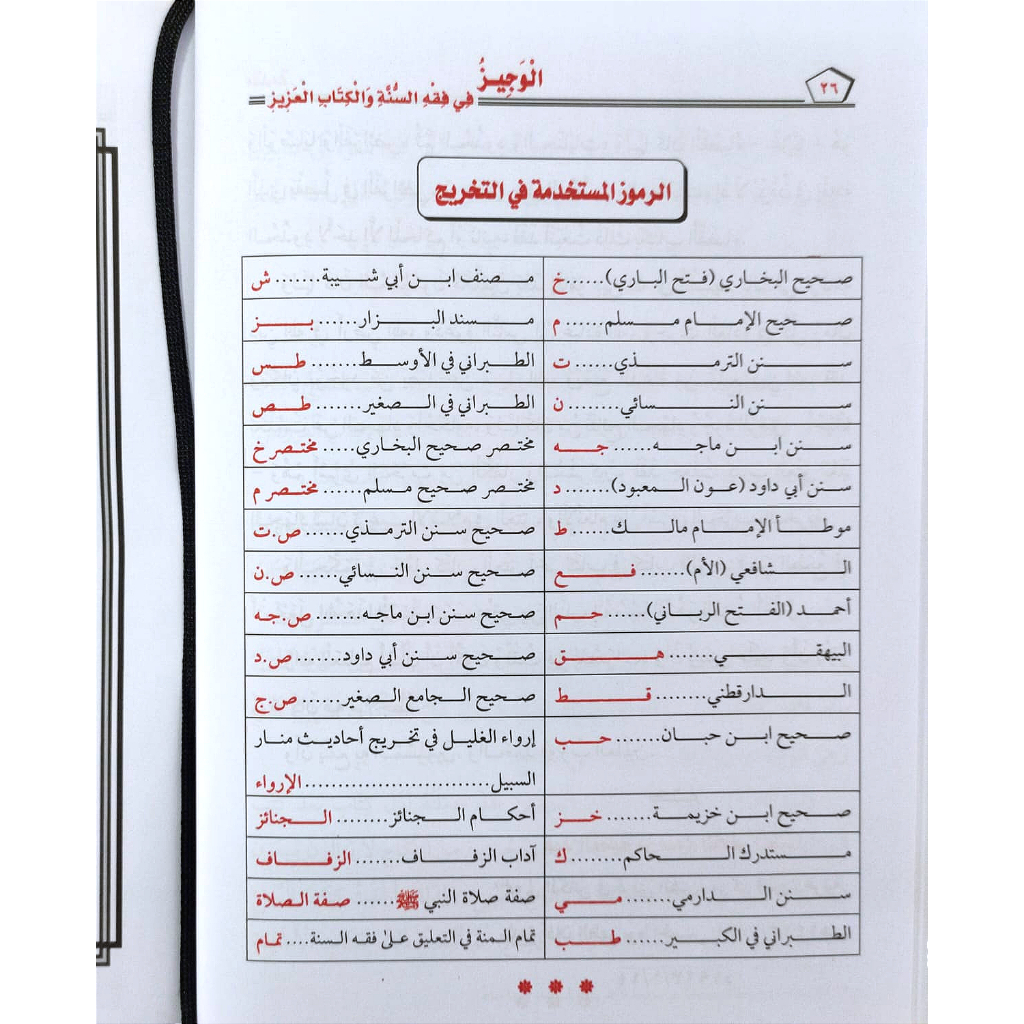 ٢٦
الْوَجِيـزُ
فِي فِقْهِ السُّنَّةِ وَالْكِتَابِ الْعَزِيزِ
الرموز المستخدمة في التخريج
صـحيح البخاري (فـتح البـاري)......خ مـصنف ابـن أبي شـيبة......ش
صـحيح الإمـام مـسلم......م مـسند البـزار......بـز
سـنن الترمـذي......ت الطـبراني في الأوسـط.......طـس
سـنن النـسائي.........ن الطـبراني في الـصغير.......طـص
سـنن ابـن ماجـه......جـه مختـصر صـحيح البخاري.......مختـصر خ
سـنن أبي داود (عـون الـمعبود)......د مختـصر صـحيح مـسلم......مختـصر م
موطـأ الإمـام مالـك......ط صـحيح سـنن الترمـذي......ص.ت
الـشافعي (الأم).......فـع صـحيح سـنن النـسائي......ص.ن
أحمـد (الفـتح الربـاني)......حـم صـحيح سـنن ابـن ماجـه.......ص.جه
البيهقـي.......هـق صـحيح سـنن أبي داود.......ص.د
الـدارقطني........قـط صـحيح الـجامع الـصغير......ص.ج
صـحيح ابـن حبـان.......حـب إرواء الغليـل في تخـريج أحاديـث منـار
السبيل...........................الإرواء
صـحيح ابـن خزيمـة.......خـز أحكـام الـجنائز........الـجنائز
مـستدرك الـحاكم........ك آداب الزفـاف.......الزفـاف
سـنن الـدارمي.......مـي صـفة صـلاة النبي ﷺ......صـفة الـصلاة
الطـبراني في الكبـير......طـب تمام المنة في التعليق على فقه السنة....تمام